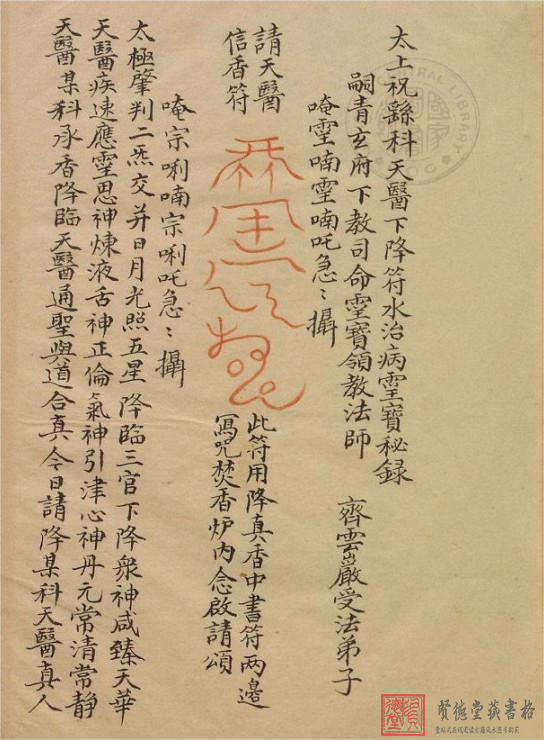 太上祝繇科天醫下降符水治病霊寶秘録
嗣青玄府下教司命霊寶領教法師 齊雲巖受法弟子
唵霊喃霊喃吒急〻攝
請天醫
信香符
此符用降真香中書符两邊
寫咒焚香炉内念啟請頌
唵宗唎喃宗唎吒急〻攝
太極肇判二炁交并日月光照五星降臨三官下降衆神咸臻天華
天醫疾速應霊思神煉液舌神正倫氣神引津心神丹元常清常静
天醫某科承香降臨天醫通聖與道合真今日請降某科天醫真人
CENTRAL LIBRARY
賢德堂藏書格